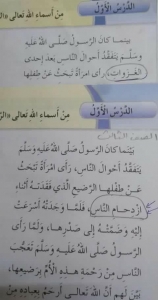 الدَّرْسُ الْأَوَّلُ
مِنْ أَسماءِ اللهِ تعالى
بَيْنَما كانَ الرَّسولُ صَلَّى اللهُ عَلَيْهِ
وَسَلَّمَ يَتَفَقَّدُ أَحْوالَ النّاسِ بَعدَ إِحْدى
الغَزَواتِ، رَأى امْرَأَةً تَبْحَثُ عَنْ طِفْلِها
الدَّرْسُ الْأَوَّلُ
مِنْ أَسماءِ اللهِ تعالى
الصف
بَيْنَما كانَ الرَّسولُ صَلَّى اللهُ عَلَيْهِ وَسَلَّمَ
يَتَفَقَّدُ أَحْوالَ النّاسِ، رَأى امْرَأَةً تَبْحَثُ
عَنْ طِفْلِها الرَّضيعِ الَّذي فَقَدَتْهُ أَثْناءَ
ازْدِحامِ النّاسِ، فَلَمّا وَجَدَتْهُ أَسْرَعَتْ
إِلَيْهِ وَضَمَّتْهُ إِلى صَدْرِها، وَلَمّا رَأى
الرَّسولُ صَلَّى اللهُ عَلَيْهِ وَسَلَّمَ تَعَجُّبَ
النّاسِ مِنْ رَحْمَةِ هذِهِ الْأُمِّ بِرَضيعِها،
بَيَّنَ لَهُمْ أَنَّ اللهَ تَعالى أَرْحَمُ بِعِبادِهِ مِنْ